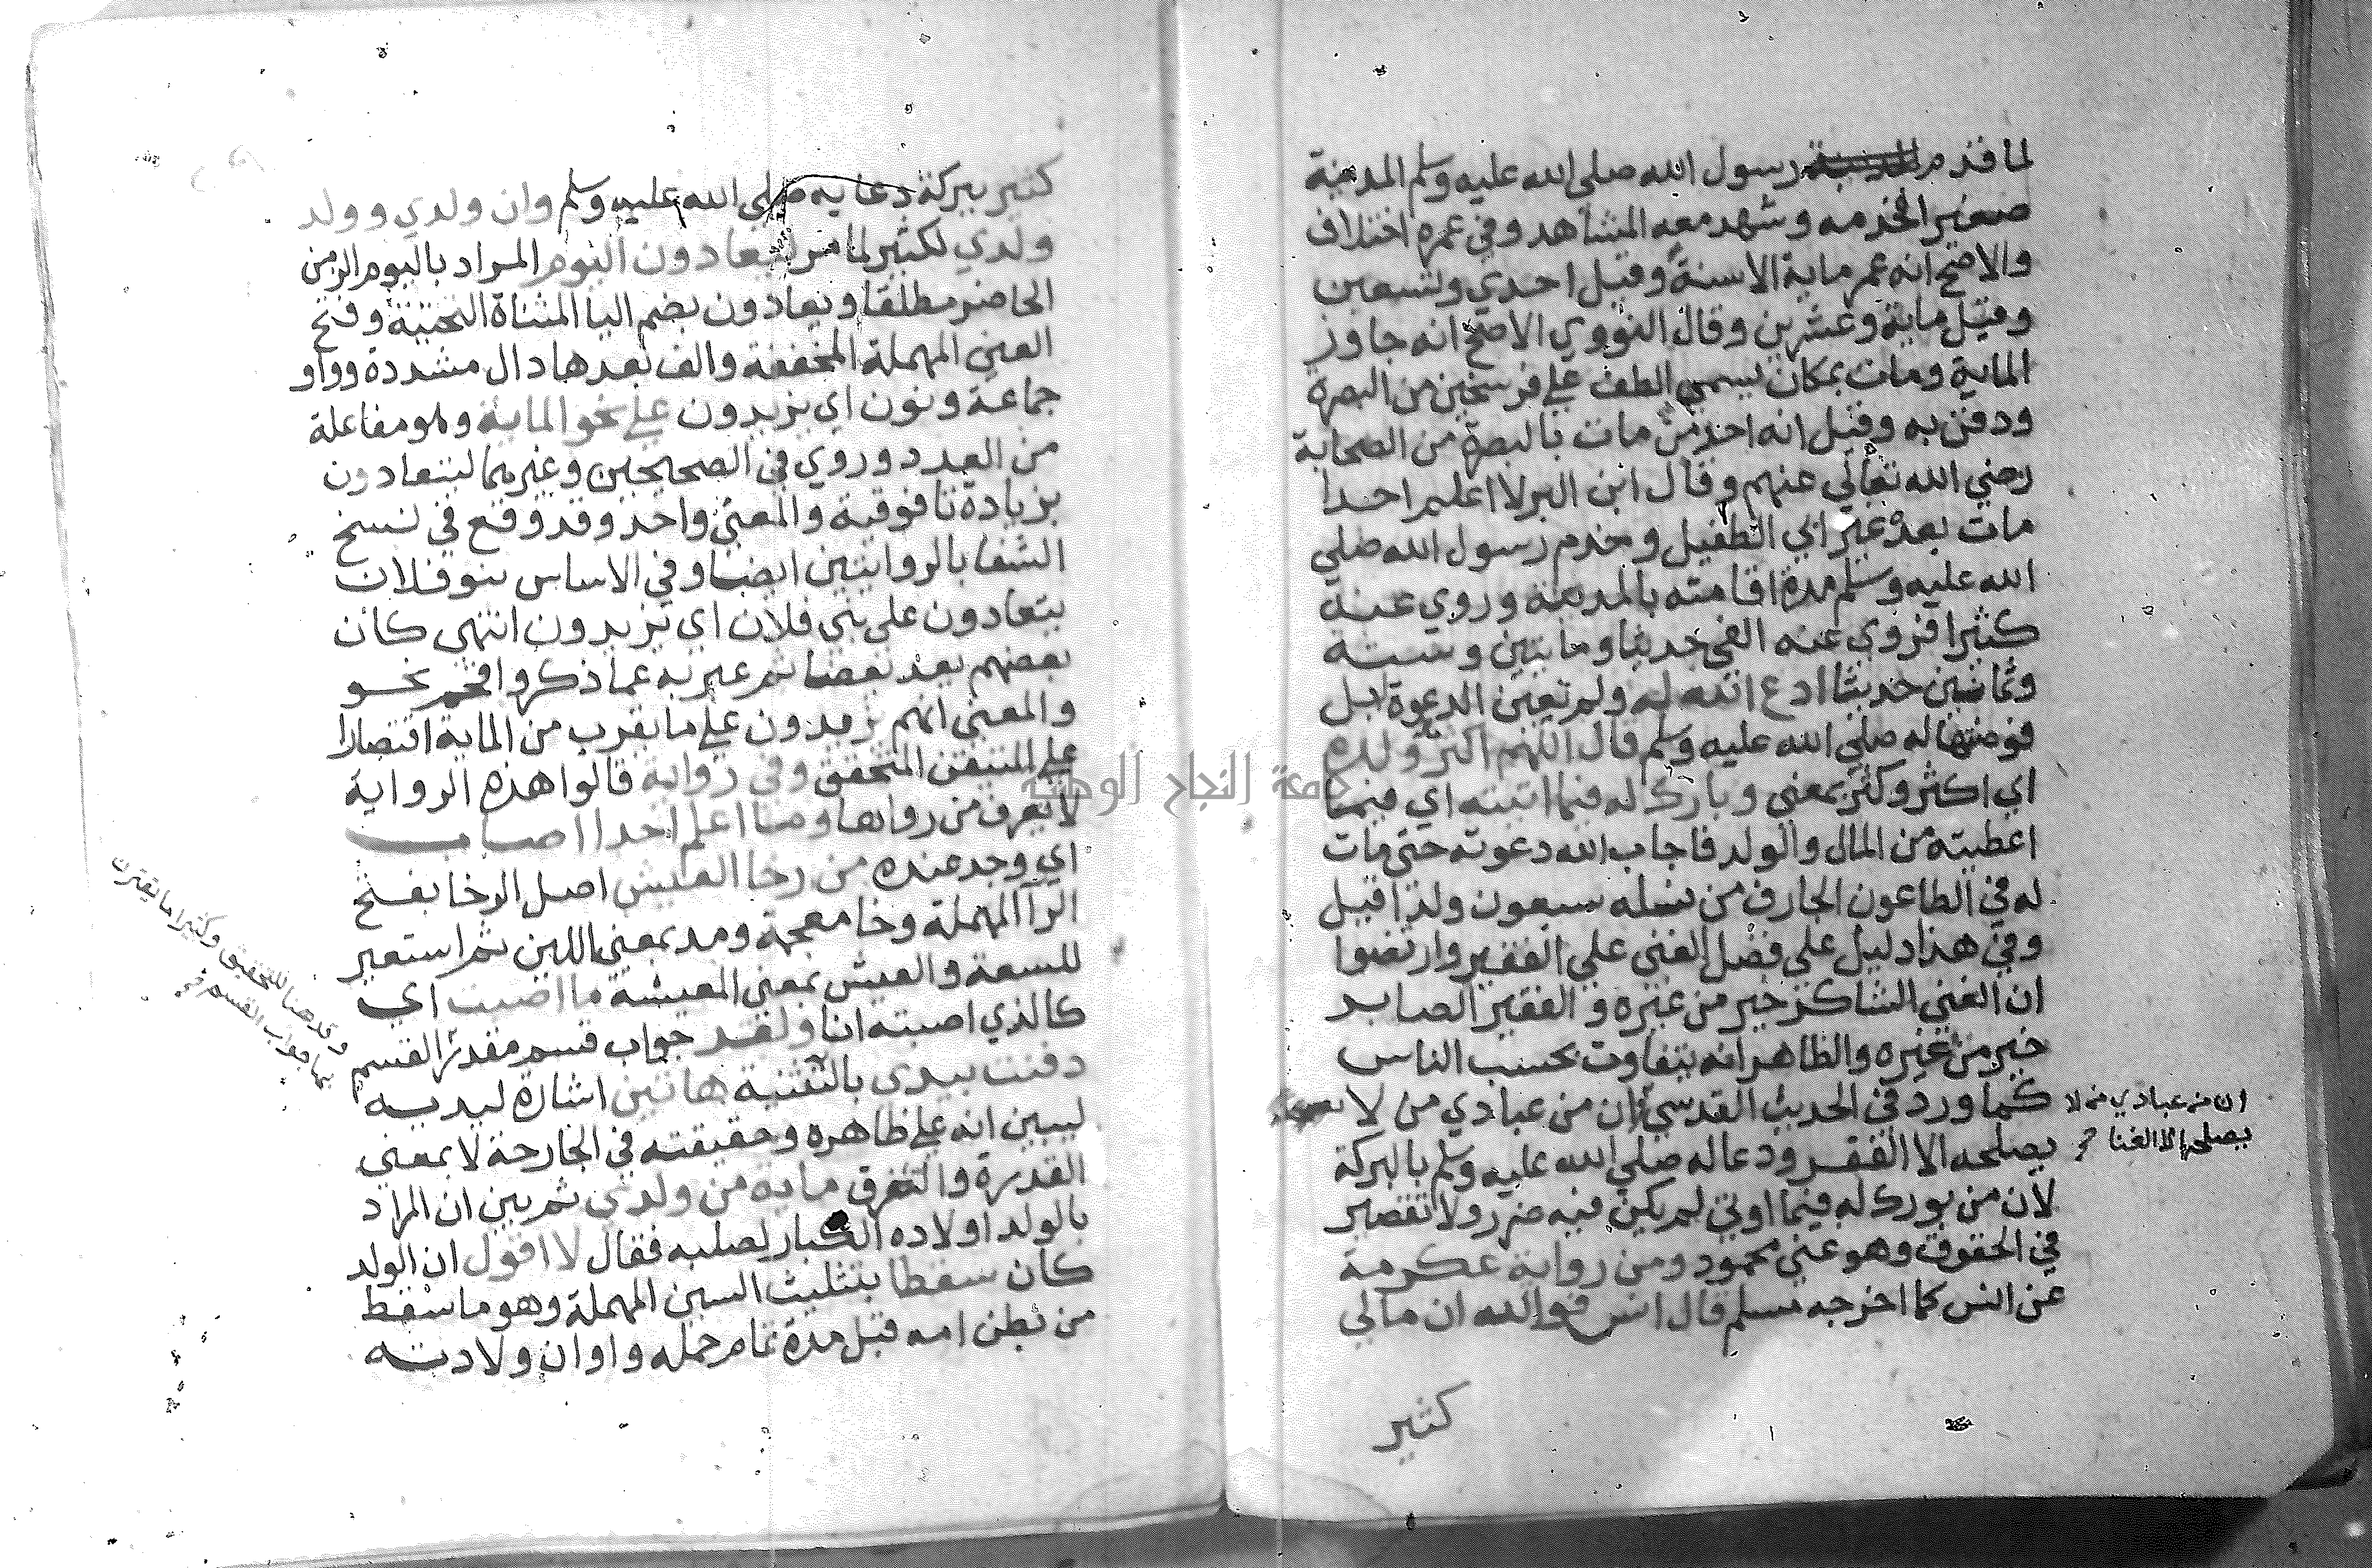 لما قدم رسول الله صلى الله عليه وسلم المدينة
صغير الخدمه وشهد معه المشاهد وفي عمره اختلاف
والاصح انه عمر ماية الاسنة وقيل احدي وتسعين
وقيل ماية وعشرين وقال النووي الاصح انه جاوز
الماية ومات بمكان يسمي الطف علي فرسخين من البصرة
ودفن به وقيل انه اخر من مات بالبصرة من الصحابة
رضي الله تعالي عنهم وقال ابن البر لا اعلم احدا
مات بعده غير ابي الطفيل وخدم رسول الله صلي
الله عليه وسلم مدة اقامته بالمدينة وروي عنه
كثيرا فروي عنه الفي حديث ومايتين وستة
وثمانين حديثا ادع الله له ولم تعين الدعوة بل
فوضتها له صلي الله عليه وسلم قال اللهم اكثر ولده
اي اكثر وكثر بمعني وبارك له فيما اتيته اي فيما
اعطيته من المال والولد فاجاب الله دعوته حتي مات
له في الطاعون الجارف من نسله سبعون ولدا قيل
وفي هذا دليل علي فضل الغني علي الفقير وارتضوا
ان الغني الشاكر خير من غيره والفقير الصابر
خير من غيره والظاهر انه يتفاوت بحسب الناس
كما ورد في الحديث القدسي ان من عبادي من لا
يصلحه الا الفقر ودعاله صلي الله عليه وسلم بالبركة
لان من بورك له فيما اوتي لم يكن فيه ضرر ولا تقصير
في الحقوق وهو غني محمود ومن رواية عكرمة
عن انس كما اخرجه مسلم قال انس فوالله ان مالي
كثير
ان من عبادي من لا
يصلحه الا الغنا
كثير ببركة دعايه صلي الله عليه وسلم وان ولدي وولد
ولدي لكثير ليعادون اليوم المراد باليوم الزمن
الحاضر مطلقا ويعادون بضم اليا المثناة التحتية وفتح
العين المهملة المخففة والف بعدها دال مشددة وواو
جماعة ونون اي يزيدون علي نحو الماية وهو مفاعلة
من العدد وروي في الصحيحين وغيرهما ليتعادون
بزيادة تا فوقية والمعني واحد وقد وقع في نسخ
الشفا بالروايتين ايضا وفي الاساس بنو فلان
يتعادون علي بني فلان اي يزيدون انتهي كأن
بعضهم يعد بعضا ثم عبر به عما ذكر وافحم نحو
والمعني انهم يزيدون علي ما يقرب من الماية اقتصارا
علي المتيقن المتحقق وفي رواية قالوا هذه الرواية
لا يعرف من رواها وما اعلم احدا اصاب
اي وجد عنده من رخا العيش اصل الرخا بفتح
الرآ المهملة وخا معجمة ومد بمعني اللين ثم استعير
للسعة والعيش بمعني المعيشة ما اصبت اي
كالذي اصبته انا ولقد جواب قسم مقدر القسم
دفنت بيدي بالتثنية هاتين اشارة ليديه
ليبين انه علي ظاهره وحقيقته في الجارحة لا بمعني
القدرة والتفرق ماية من ولدي ثم بين ان المراد
بالولد اولاده الكبار لصلبه فقال لا اقول ان الولد
كان سقطا بتثليث السين المهملة وهو ما سقط
من بطن امه قبل مدة تمام حمله واوان ولادته
وقد هنا للتحقيق وكثيرا ما يقترن
بها جواب القسم
جامعة النجاح الوطنية